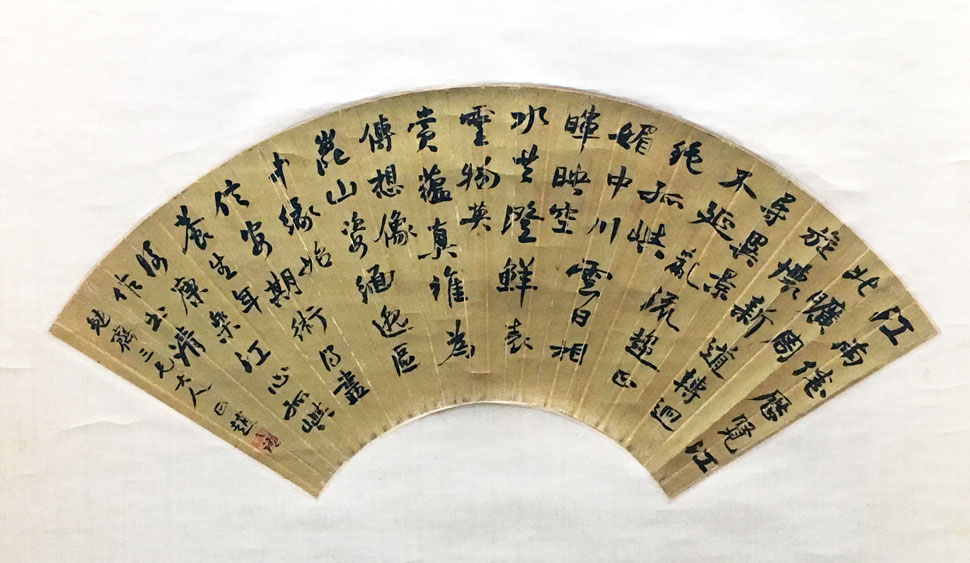 江南倦歷覽江
北曠周
旋懷新道轉迥
尋異景
不延亂流趨正
絕孤嶼
媚中川雲日相
暉映空
水共澄鮮表
靈物莫
賞蘊真誰為
傳想像
崑山姿緬邈區
中緣始
信安期術得盡
養生年
謝康樂江心孤嶼
作書請
齋三兄大人正 趙